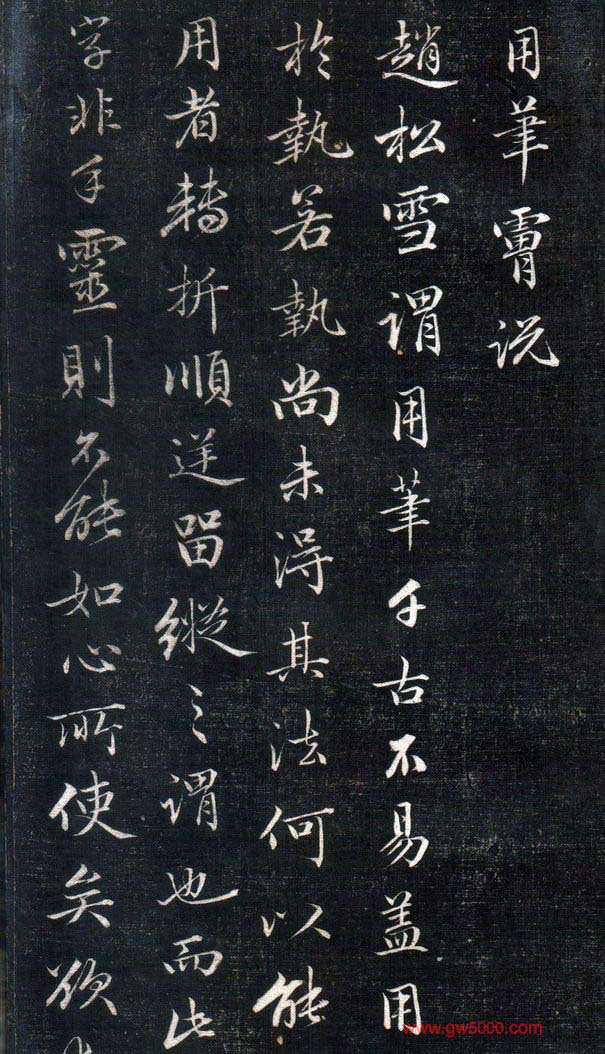 用筆说
趙松雪謂用筆千古不易盖用
於執若執尚未得其法何以能
用者轉折順逆留縱之謂也而此
字非手靈則不能如心所使矣欲
www.gw5000.com